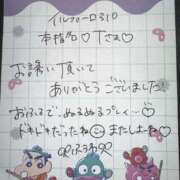 イルフィーロ310
本指名♡Tさま♡
お誘い頂いて
ありがとうございました!
おふろで、ぬるぬるプレイ…♡
ドキドキだったね またしよーね♡